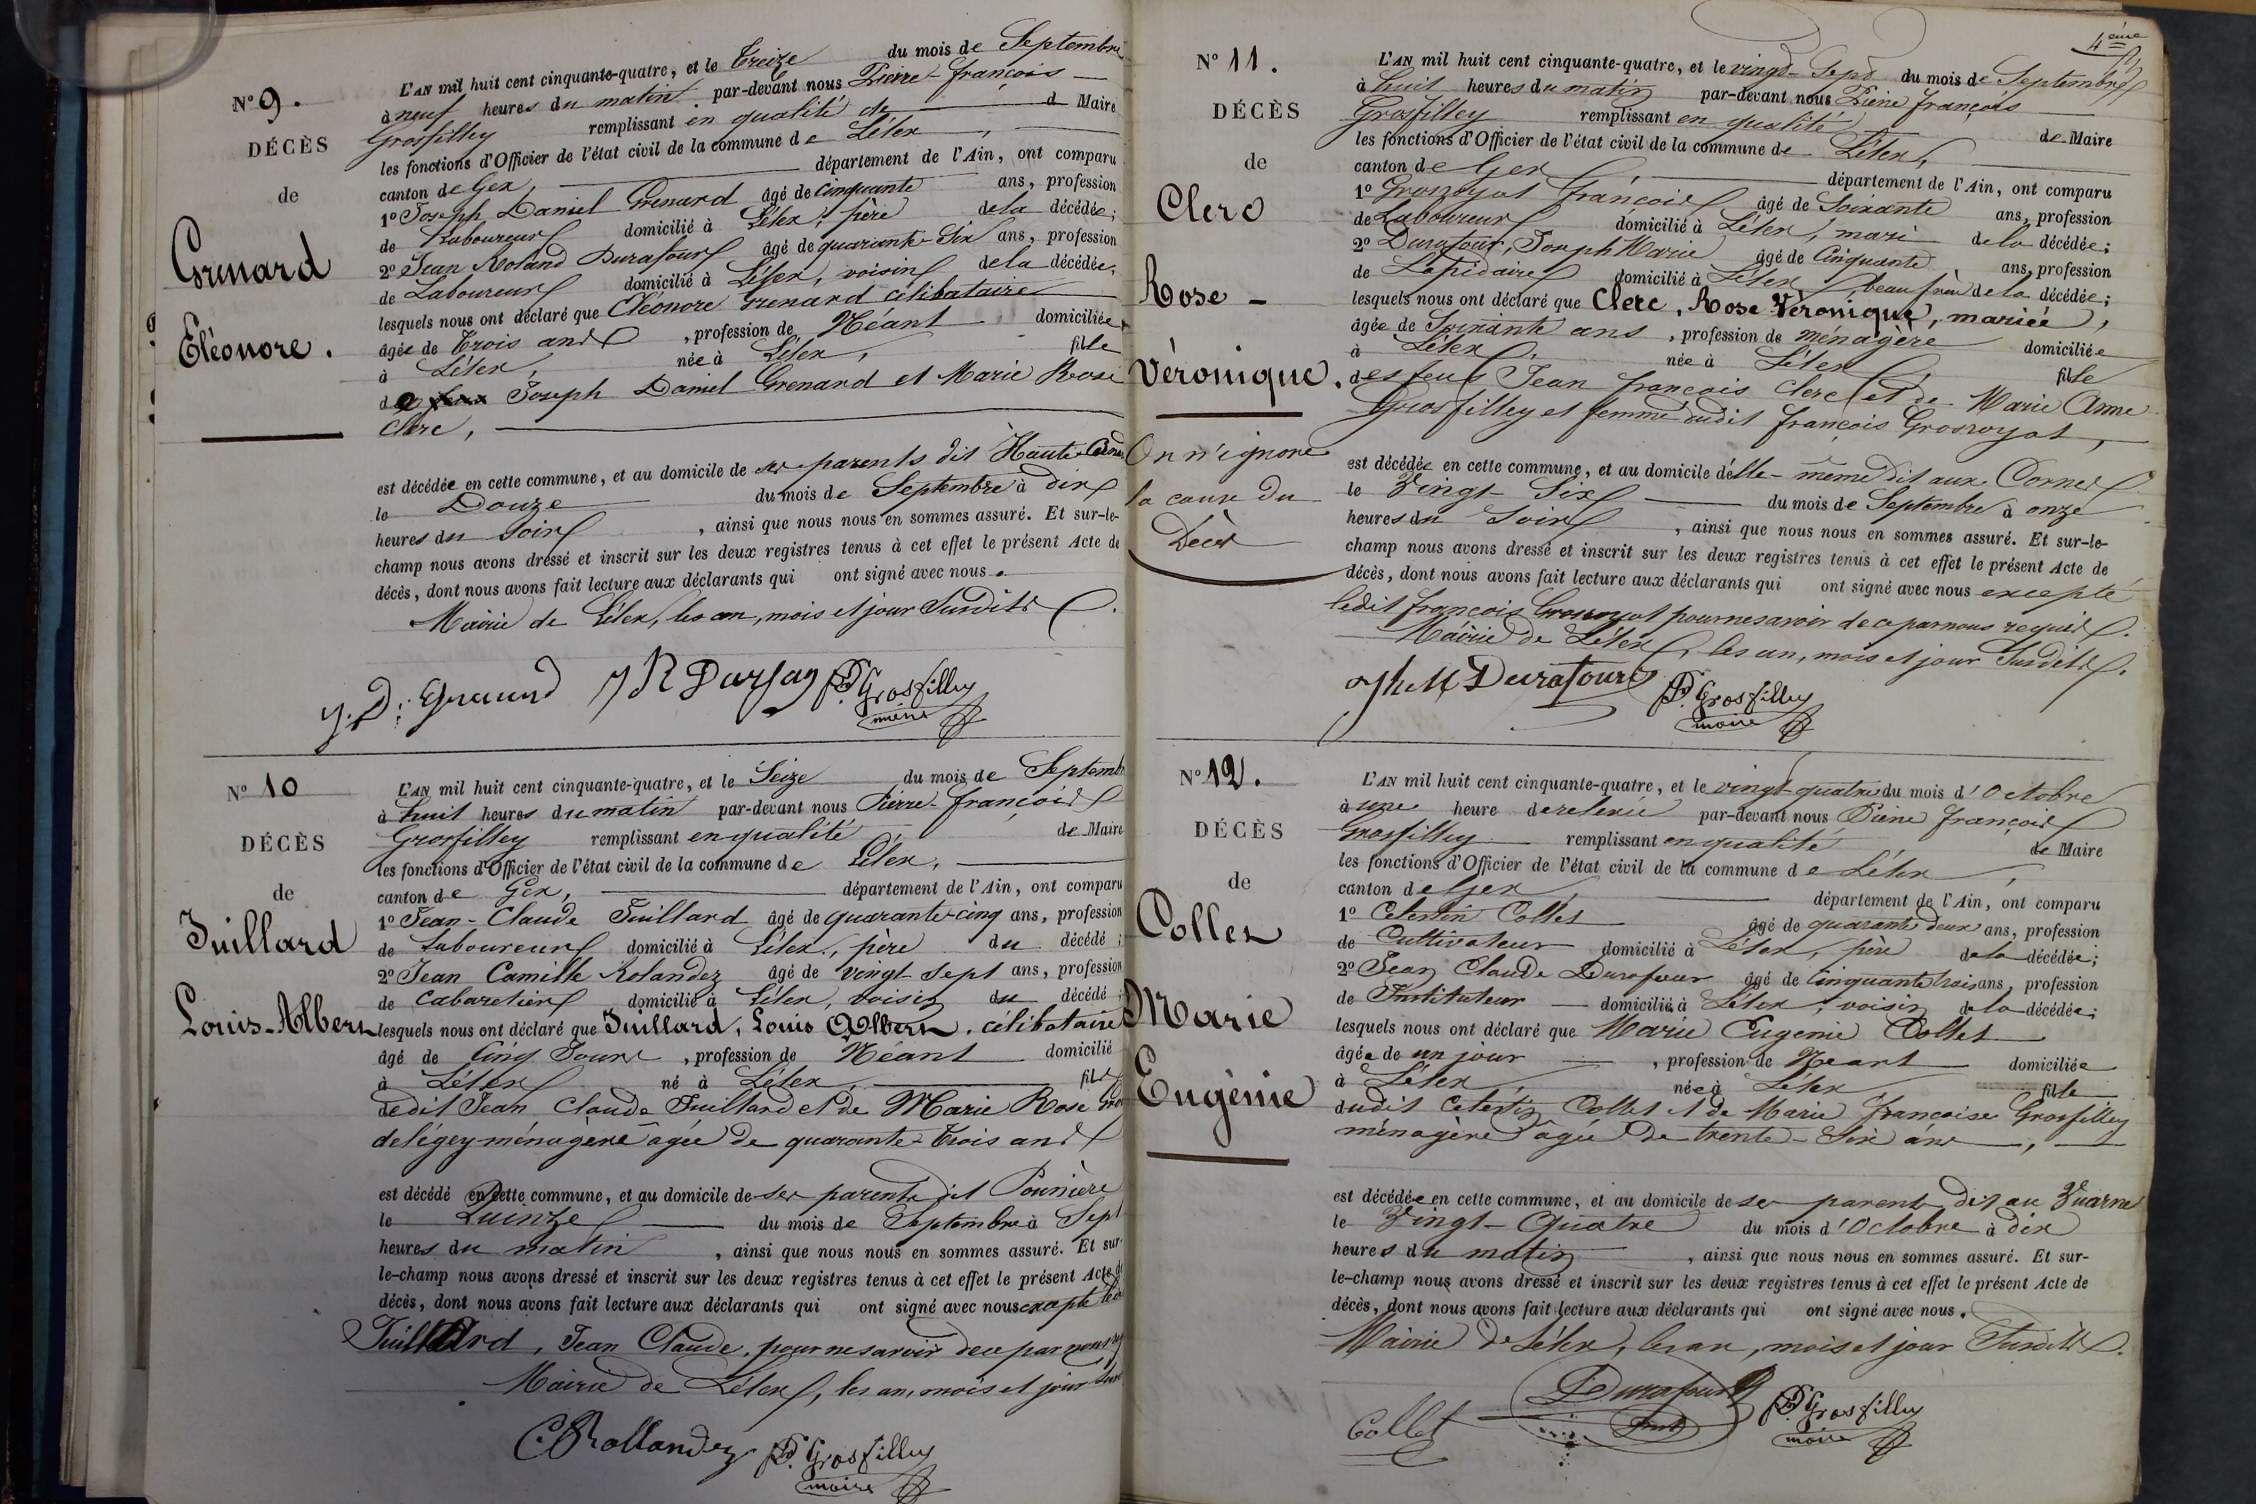 N° 9.
DÉCÈS
de
Grenard
Eléonore.
L'AN mil huit cent cinquante-quatre, et le Treize du mois de Septembre
à neuf heures du matin. par-devant nous Pierre-françois
Grosfilley remplissant en qualité de d Maire
les fonctions d'Officier de l'état civil de la commune de Lélex,
canton de Gex, département de l'Ain, ont comparu
1° Joseph Daniel Grenard âgé de cinquante ans, profession
de Laboureur domicilié à Lélex, père de la décédée;
2° Jean Roland Durafour âgé de quarante-Six ans, profession
de Laboureur domicilié à Lélex, voisin de la décédée,
lesquels nous ont déclaré que Eléonore Grenard célibataire
âgée de Trois ans , profession de Néant domiciliée
à Lélex, née à Lélex, fille
de Joseph Daniel Grenard et Marie Rose
Clerc,
est décédée en cette commune, et au domicile de ses parents dit Haute
le Douze du mois de Septembre à dix
heures du soir , ainsi que nous nous en sommes assuré. Et sur-le-
champ nous avons dressé et inscrit sur les deux registres tenus à cet effet le présent Acte de
décès, dont nous avons fait lecture aux déclarants qui ont signé avec nous.
Mairie de Lélex, les an, mois et jour Susdits.
P. Grosfilley
maire
N° 10
DÉCÈS
de
Juillard
Louis-Albert
L'AN mil huit cent cinquante-quatre, et le Seize du mois de Septemb
à huit heures du matin par-devant nous Pierre-françois
Grosfilley remplissant en qualité de Maire
les fonctions d'Officier de l'état civil de la commune de Lélex,
canton de Gex, département de l'Ain, ont comparu
1° Jean-Claude Juillard âgé de quarante-cinq ans, profession
de Laboureur domicilié à Lélex, père du décédé;
2° Jean Camille Rolandez âgé de vingt-sept ans, profession
de Cabaretier domicilié à Lélex, voisin du décédé;
lesquels nous ont déclaré que Juillard, Louis Albert, célibataire
âgé de Cinq Jours , profession de Néant domicilié
à Lélex né à Lélex, fils
dudit Jean Claude Juillard et de Marie Rose
ménagère âgée de quarante-Trois ans
est décédé en cette commune, et au domicile de ses parents dit
le Quinze du mois de Septembre à Sept
heures du matin , ainsi que nous nous en sommes assuré. Et sur-
le-champ nous avons dressé et inscrit sur les deux registres tenus à cet effet le présent Acte de
décès, dont nous avons fait lecture aux déclarants qui ont signé avec nous excepté
Juillard, Jean Claude, pour ne savoir de ce par nous
Mairie de Lélex, les an, mois et jour
C Rollandez P. Grosfilley
maire
4ème
N° 11.
DÉCÈS
de
Clerc
Rose -
Véronique.
On n'ignore
la cause du
Décès
L'AN mil huit cent cinquante-quatre, et le vingt-Sept du mois de Septembre
à huit heures du matin par-devant nous Pierre françois
Grosfilley remplissant en qualité de Maire
les fonctions d'Officier de l'état civil de la commune de Lélex,
canton de Gex, département de l'Ain, ont comparu
1° Grosroyat françois âgé de Soixante ans, profession
de Laboureur domicilié à Lélex, mari de la décédée;
2° Durafour, Joseph Marie âgé de Cinquante ans, profession
de Lapidaire domicilié à Lélex, beau frère de la décédée;
lesquels nous ont déclaré que Clerc, Rose Véronique, mariée,
âgée de Soixante ans , profession de ménagère domiciliée
à Lélex, née à Lélex, fille
des feus Jean françois Clerc et de Marie Anne
Grosfilley et femme dudit françois Grosroyat,
est décédée en cette commune, et au domicile d'elle-même dit aux Cornes
le Vingt-Six du mois de Septembre à onze
heures du soir , ainsi que nous nous en sommes assuré. Et sur-le-
champ nous avons dressé et inscrit sur les deux registres tenus à cet effet le présent Acte de
décès, dont nous avons fait lecture aux déclarants qui ont signé avec nous excepté
ledit françois Grosroyat pour ne savoir de ce par nous requis.
Mairie de Lélex, les an, mois et jour Susdits.
Jh M Durafour P. Grosfilley
maire
N° 12.
DÉCÈS
de
Collet
Marie
Eugènie
L'AN mil huit cent cinquante-quatre, et le vingt-quatre du mois d'Octobre
à une heure de relevée par-devant nous Pierre françois
Grosfilley remplissant en qualité de Maire
les fonctions d'Officier de l'état civil de la commune de Lélex,
canton de Gex, département de l'Ain, ont comparu
1° Celestin Collet âgé de quarante deux ans, profession
de Cultivateur domicilié à Lélex, père de la décédée;
2° Jean Claude Durafour âgé de Cinquante trois ans, profession
de Instituteur domicilié à Lélex, voisin de la décédée;
lesquels nous ont déclaré que Marie Eugenie Collet
âgée de un jour , profession de Neant domiciliée
à Lélex née à Lélex fille
dudit Celestin Collet et de Marie françoise Grosfilley
ménagère âgée de trente-Six ans,
est décédée en cette commune, et au domicile de ses parents dit au
le Vingt-Quatre du mois d'Octobre à dix
heures du matin , ainsi que nous nous en sommes assuré. Et sur-
le-champ nous avons dressé et inscrit sur les deux registres tenus à cet effet le présent Acte de
décès, dont nous avons fait lecture aux déclarants qui ont signé avec nous.
Mairie de Lélex, les an, mois et jour Susdits.
Collet Durafour P. Grosfilley
maire